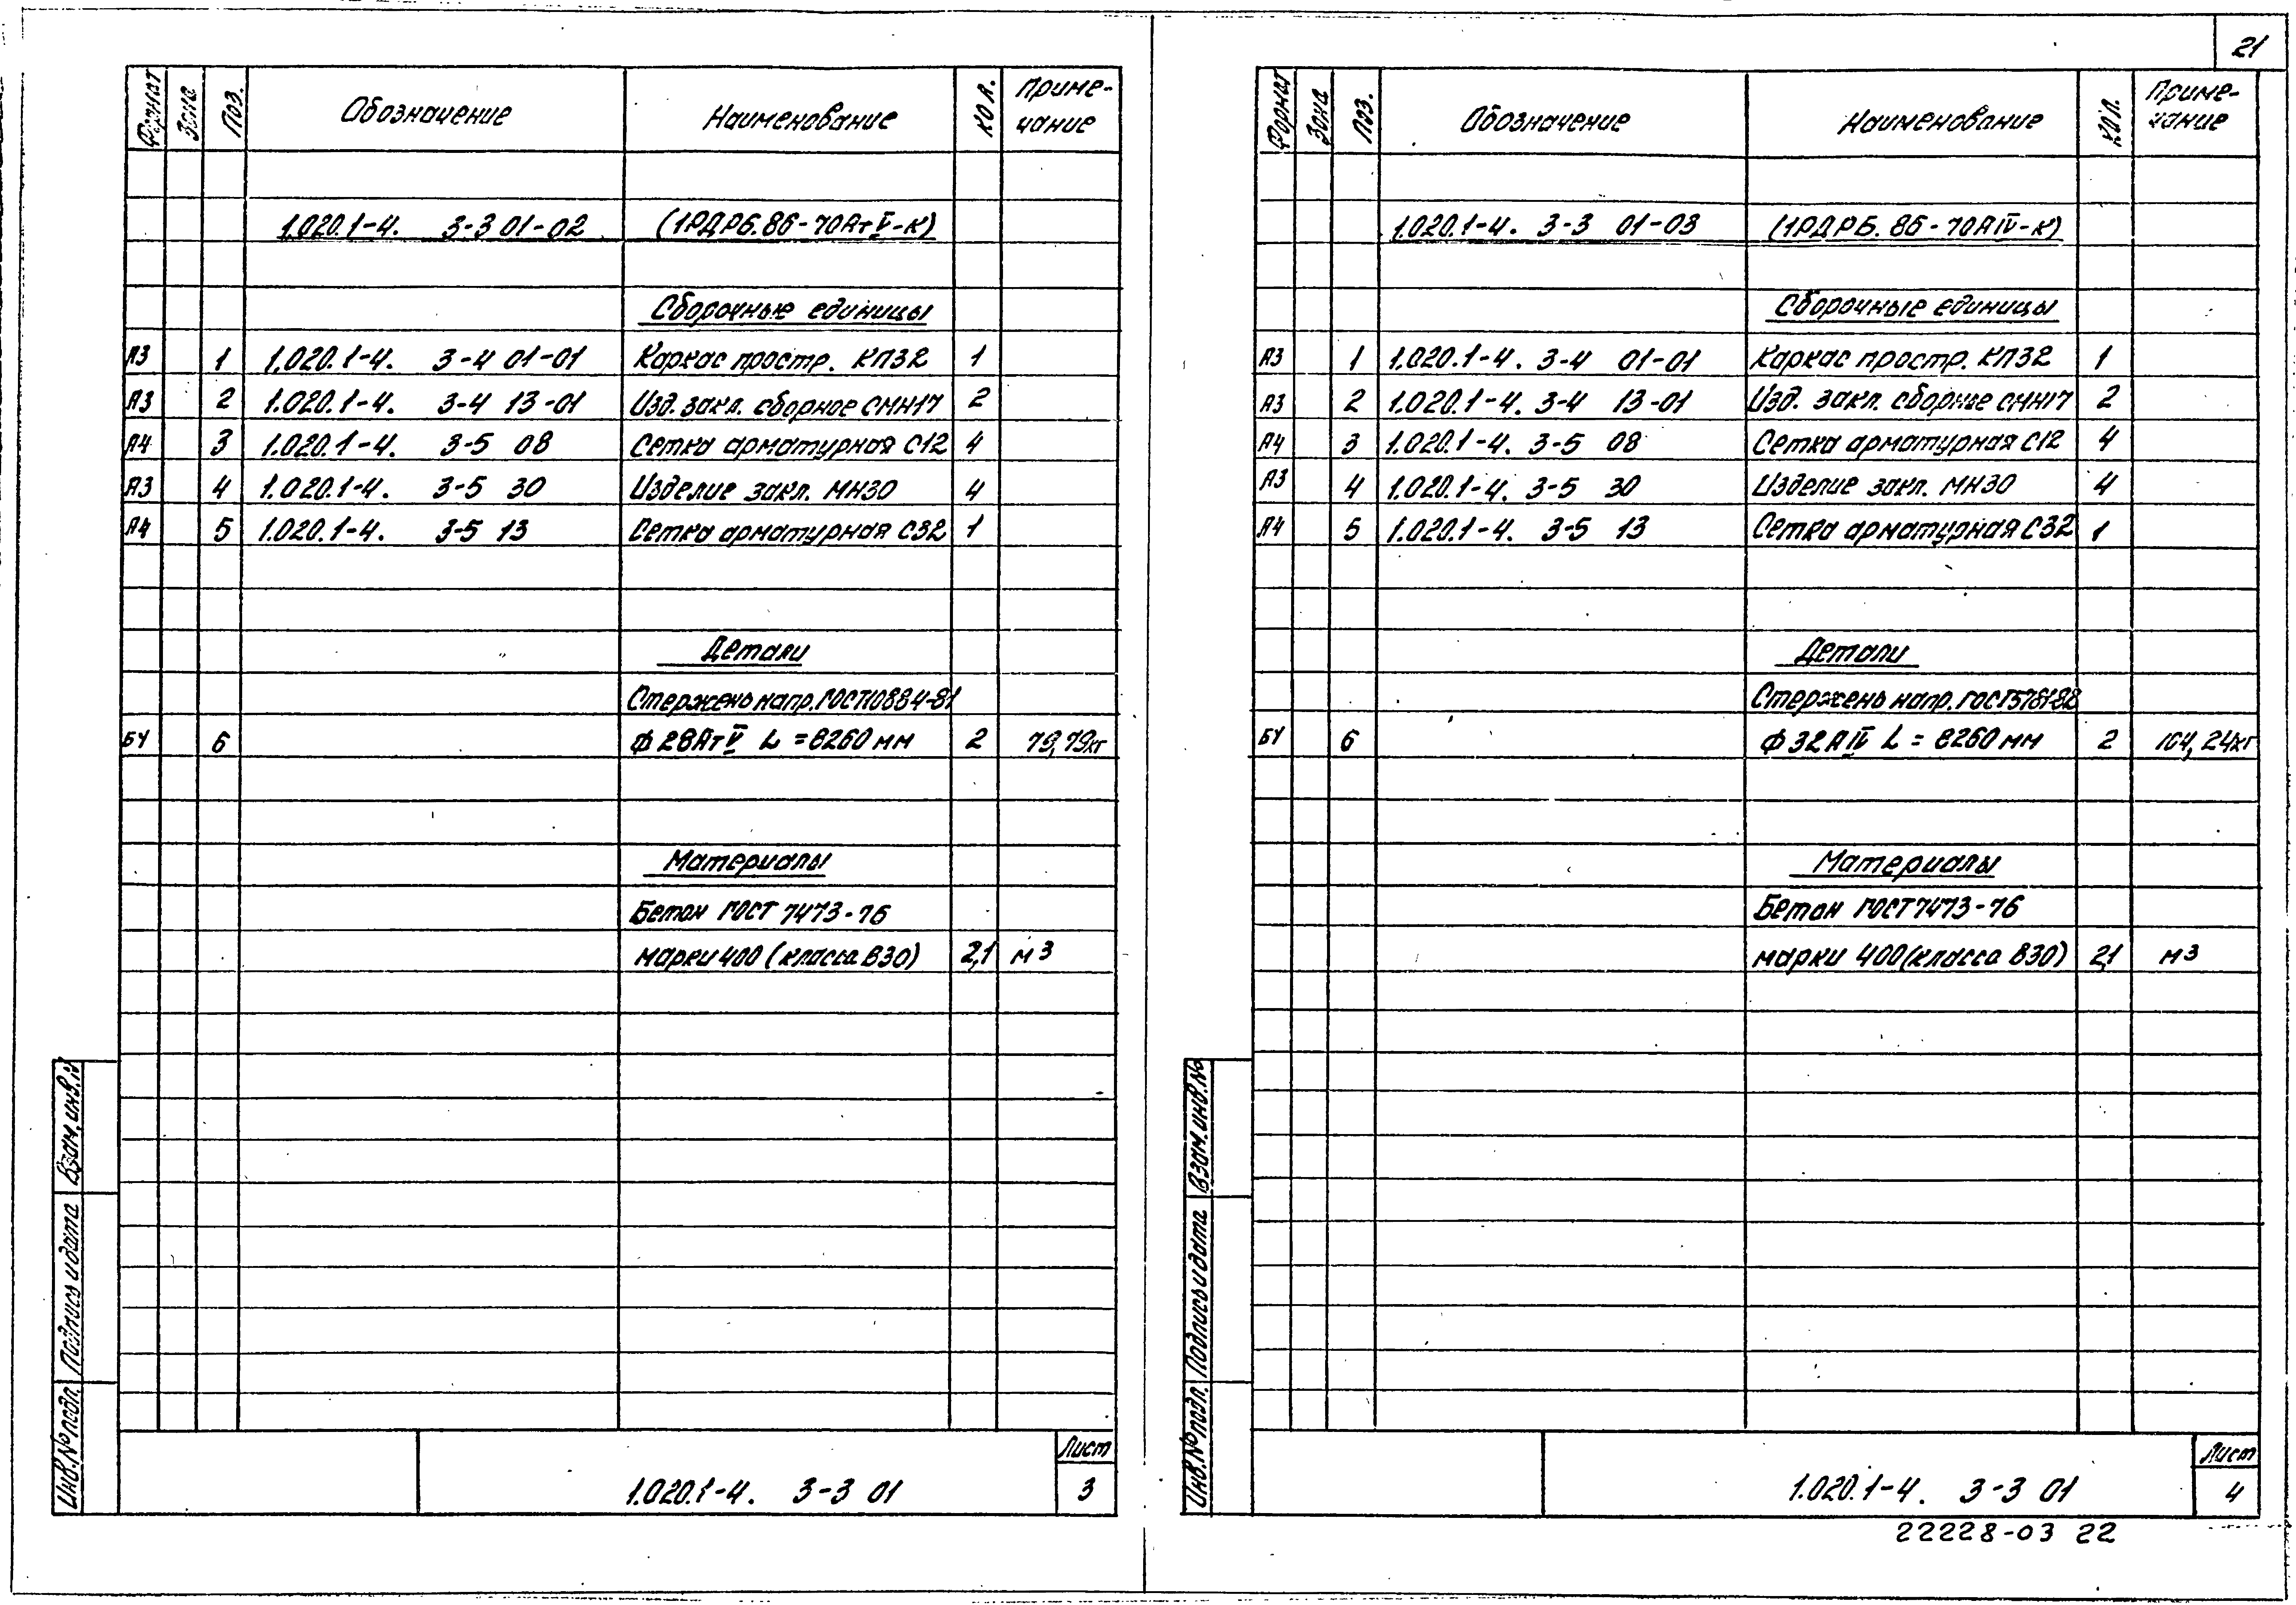 21
Формат Зона Поз. Обозначение Наименование Кол. Приме-
чание
1.020.1-4. 3-3 01-02 (1РДР6.86-70АтV-К)
Сборочные единицы
А3 1 1.020.1-4. 3-4 01-01 Каркас простр. КП32 1
А3 2 1.020.1-4. 3-4 13-01 Изд. закл. сборное СМН17 2
А4 3 1.020.1-4. 3-5 08 Сетка арматурная С12 4
А3 4 1.020.1-4. 3-5 30 Изделие закл. МН30 4
А4 5 1.020.1-4. 3-5 13 Сетка арматурная С32 1
Детали
Стержень напр. ГОСТ10884-81
БЧ 6 ф28АтV L=8260мм 2 79,79кг
Материалы
Бетон ГОСТ 7473-76
марки 400 (класса В30) 2,1 м3
Взам.инв.№
Подпись и дата
Инв.№ подл.
1.020.1-4. 3-3 01
Лист
3
Формат Зона Поз. Обозначение Наименование Кол. Приме-
чание
1.020.1-4. 3-3 01-03 (1РДР6.86-70АIV-К)
Сборочные единицы
А3 1 1.020.1-4. 3-4 01-01 Каркас простр. КП32 1
А3 2 1.020.1-4. 3-4 13-01 Изд. закл. сборное СМН17 2
А4 3 1.020.1-4. 3-5 08 Сетка арматурная С12 4
А3 4 1.020.1-4. 3-5 30 Изделие закл. МН30 4
А4 5 1.020.1-4. 3-5 13 Сетка арматурная С32 1
Детали
Стержень напр. ГОСТ5781-82
БЧ 6 ф32АIV L=8260мм 2 104,24кг
Материалы
Бетон ГОСТ7473-76
марки 400(класса В30) 2,1 м3
Взам.инв.№
Подпись и дата
Инв.№ подл.
1.020.1-4. 3-3 01
Лист
4
22228-03 22